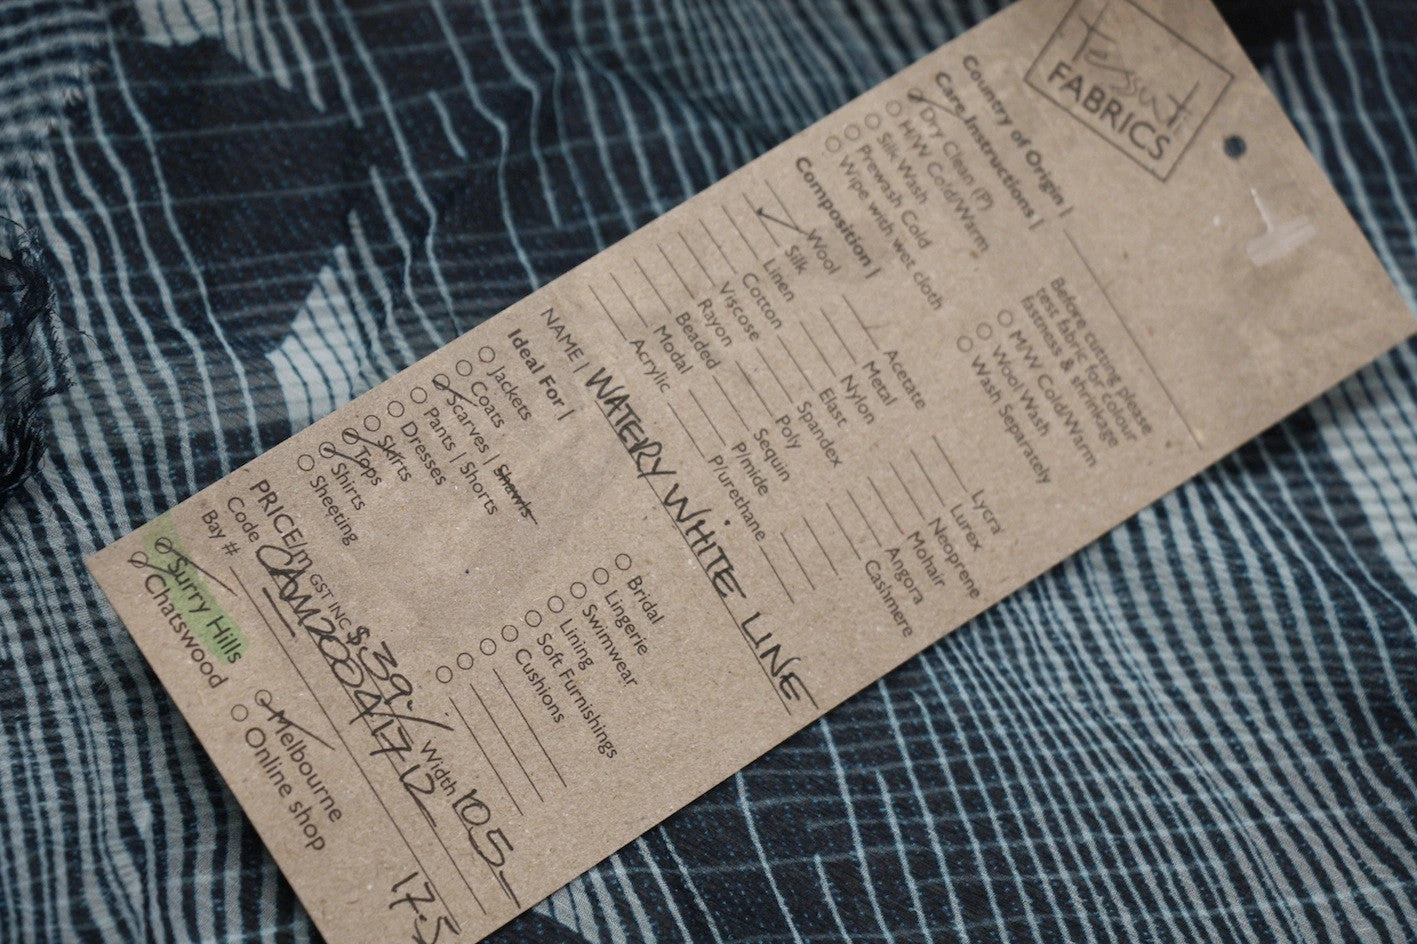 Tessuti
FABRICS
Country of Origin |
Care Instructions |
Dry Clean (P)
H/W Cold/Warm
Silk Wash
Prewash Cold
Wipe with wet cloth
Before cutting please
test fabric for colour
fastness & shrinkage
M/W Cold/Warm
Wool Wash
Wash Separately
Composition |
Wool
Silk
Linen
Cotton
Viscose
Rayon
Beaded
Modal
Acrylic
Acetate
Metal
Nylon
Elast
Spandex
Poly
Sequin
P/mide
P/urethane
Lycra
Lurex
Neoprene
Mohair
Angora
Cashmere
NAME | WATERY WHITE LINE
Ideal For |
Jackets
Coats
Scarves | Shawls
Pants | Shorts
Dresses
Skirts
Tops
Shirts
Sheeting
Bridal
Lingerie
Swimwear
Lining
Soft Furnishings
Cushions
PRICE/m GST INC $39./ Width 105
Code
Bay #
Surry Hills
Chatswood
Melbourne
Online shop
17.5